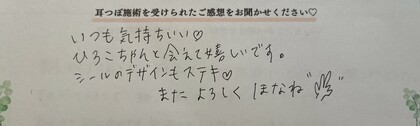 耳つぼ施術を受けられたご感想をお聞かせください♡
いつも気持ちいい♡
ひろこちゃんと会えて嬉しいです。
シールのデザインもステキ♡
また よろしく ほなね"✌"